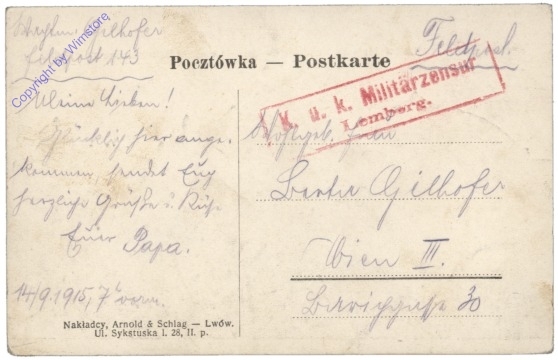 Gilhofer
Feldpost 143
Copyright by Wimstore
Pocztówka — Postkarte
Feldpost.
K. u. k. Militärzensur
Lemberg.
Meine Lieben!
Glücklich hier ange-
kommen, sendet Euch
herzliche Grüße u. Küsse
Euer Papa.
14/9. 1915, 7h vorm.
Wohlgeb. Frau
Berta Gilhofer
Wien III.
30
Nakładcy, Arnold & Schlag — Lwów.
Ul. Sykstuska l. 28, II. p.